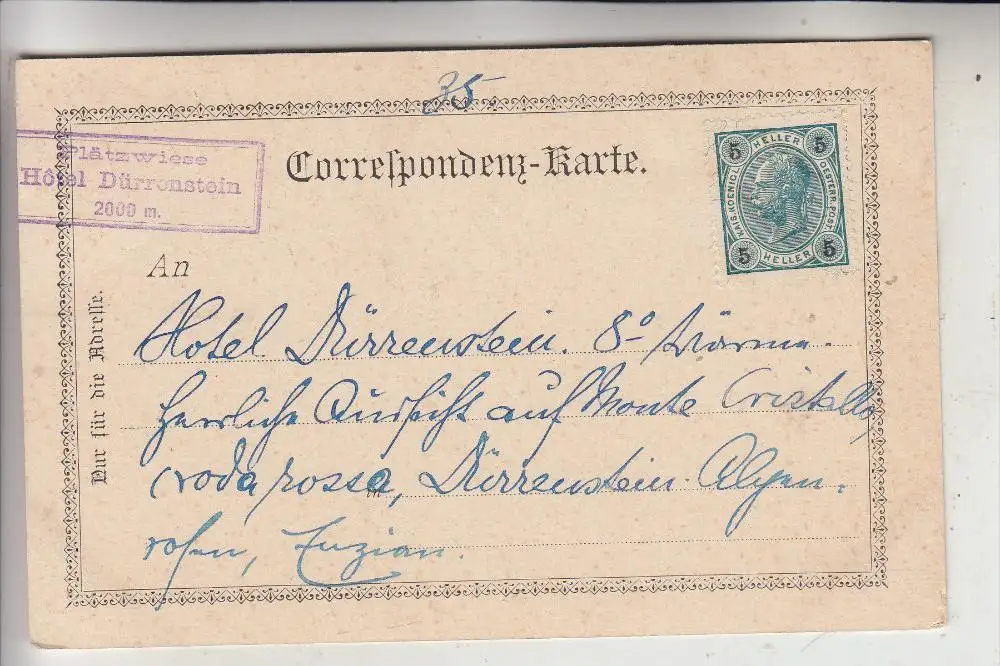 35-
Plätzwiese
Hôtel Dürrenstein
2000 m.
Correspondenz-Karte.
5 HELLER 5
KAIS. KOENIGL. OESTERR. POST.
5 HELLER 5
An
Nur für die Adresse.
Hotel Dürrenstein. 8° Wärme.
Herrliche Aussicht auf Monte Cristallo
Croda rossa, Dürrenstein. Alpen-
rosen, Enzian.